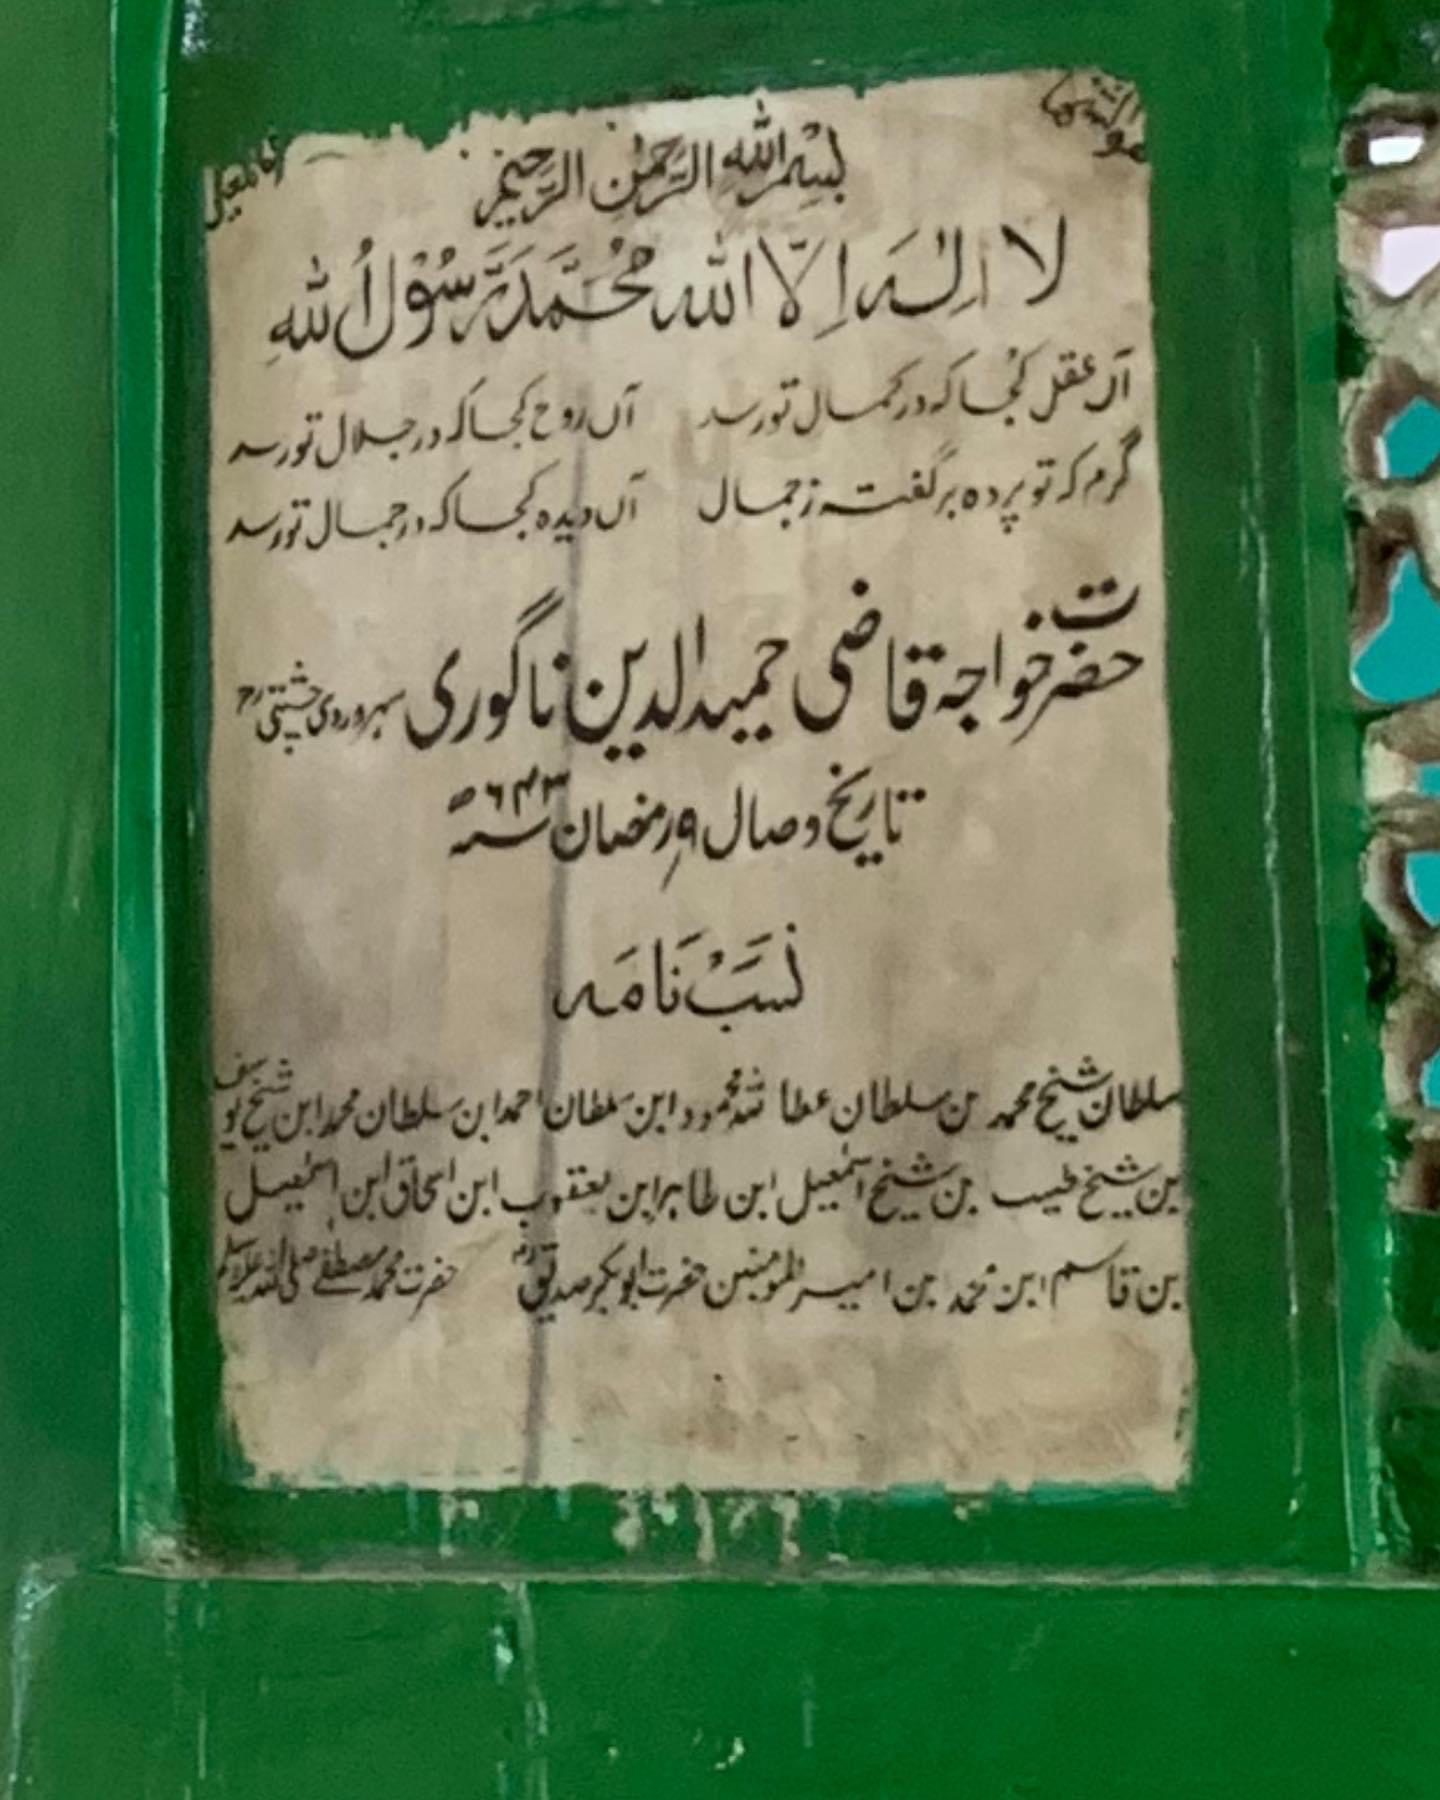 هو الشافی
یا معین
بِسْمِ اللهِ الرَّحْمٰنِ الرَّحِيْمِ
لا اِلٰہَ اِلَّا اللہ مُحَمَّدٌ رَّسُوْلُ اللہِ
آں عقل کُجا کہ در کمال تو رسد آں روح کجا کہ در جلال تو رسد
گرم کہ تو پردہ برگفتہ ز جمال آں دیدہ کجا کہ در جمال تو رسد
حضرت خواجہ قاضی حمید الدین ناگوری سہروردی چشتی رح
تاریخ وصال ۹ رمضان سنہ ۶۴۳ ھ
نَسَبْ نَامَہ
سلطان شیخ محمد بن سلطان عطا اللہ محمود ابن سلطان احمد ابن سلطان محمد ابن شیخ یوسف
بن شیخ طیب بن شیخ اسمٰعیل ابن طاہر ابن یعقوب ابن اسحاق ابن اسمٰعیل
بن قاسم ابن محمد بن امیر المومنین حضرت ابوبکر صدیق رض حضرت محمد مصطفے صلی اللہ علیہ وسلم